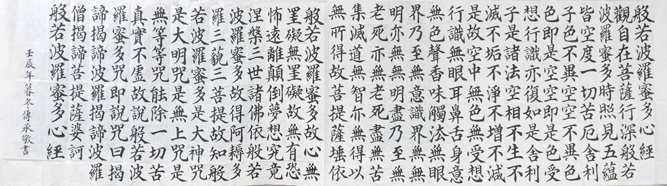 般若波羅蜜多心經
觀自在菩薩行深般若
波羅蜜多時照見五蘊
皆空度一切苦厄舍利
子色不異空空不異色
色即是空空即是色受
想行識亦復如是舍利
子是諸法空相不生不
滅不垢不淨不增不減
是故空中無色無受想
行識無眼耳鼻舌身意
無色聲香味觸法無眼
界乃至無意識界無無
明亦無無明盡乃至無
老死亦無老死盡無苦
集滅道無智亦無得以
無所得故菩提薩埵依
般若波羅蜜多故心無
罣礙無罣礙故無有恐
怖遠離顛倒夢想究竟
涅槃三世諸佛依般若
波羅蜜多故得阿耨多
羅三藐三菩提故知般
若波羅蜜多是大神咒
是大明咒是無上咒是
無等等咒能除一切苦
真實不虛故說般若波
羅蜜多咒即說咒曰揭
諦揭諦波羅揭諦波羅
僧揭諦菩提薩婆訶
般若波羅蜜多心經
壬辰年暮冬傳承敬書